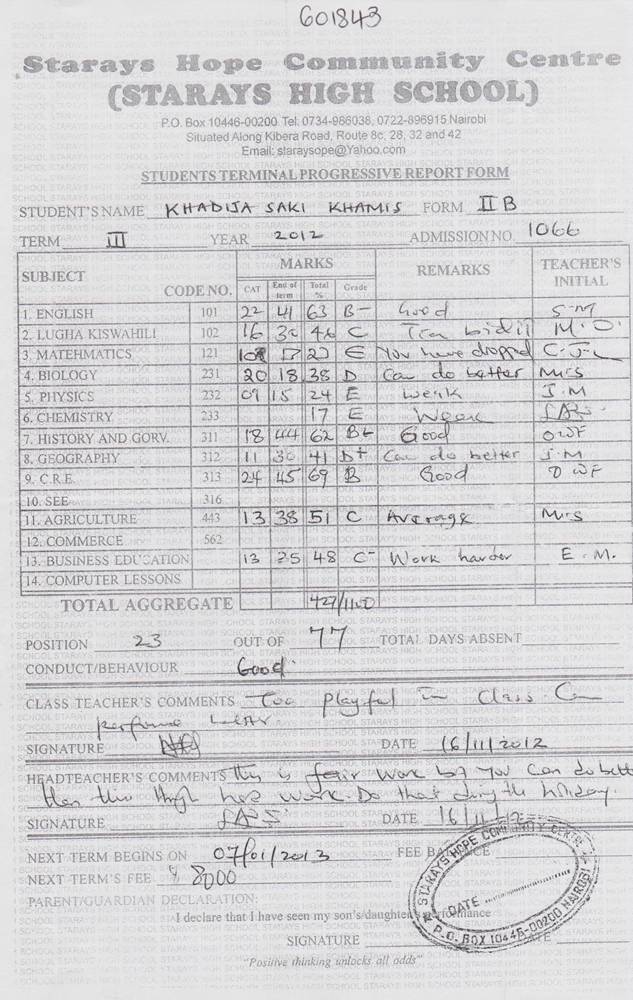 601843
Starays Hope Community Centre
(STARAYS HIGH SCHOOL)
P.O. Box 10446-00200 Tel: 0734-986038, 0722-896915 Nairobi
Situated Along Kibera Road, Route 8c, 28, 32 and 42
Email: staraysope@Yahoo.com
STUDENTS TERMINAL PROGRESSIVE REPORT FORM
STUDENT'S NAME KHADIJA SAKI KHAMIS FORM II B
TERM III YEAR 2012 ADMISSION NO. 1066
SUBJECT CODE NO. MARKS REMARKS TEACHER'S INITIAL
CAT End of term Total % Grade
1. ENGLISH 101 22 41 63 B- Good S-M
2. LUGHA KISWAHILI 102 16 30 46 C Tia bidii M.O.
3. MATEHMATICS 121 E You have dropped C.J.L
4. BIOLOGY 231 20 18 38 D Can do better M.S
5. PHYSICS 232 09 15 24 E Weak J.M
6. CHEMISTRY 233 17 E Weak
7. HISTORY AND GORV. 311 18 44 62 B+ Good OWF
8. GEOGRAPHY 312 11 30 41 D+ Can do better J.M
9. C.R.E. 313 24 45 69 B Good OWF
10. SEE 316
11. AGRICULTURE 443 13 38 51 C Average M.S
12. COMMERCE 562
13. BUSINESS EDUCATION 13 25 48 C- Work harder E.M.
14. COMPUTER LESSONS
TOTAL AGGREGATE 427/1100
POSITION 23 OUT OF 77 TOTAL DAYS ABSENT
CONDUCT/BEHAVIOUR Good
CLASS TEACHER'S COMMENTS Too playful in class. Can
perform better
SIGNATURE DATE 16/11/2012
HEADTEACHER'S COMMENTS This is fair work but you can do better
then this through hard work. Do that during the holiday.
SIGNATURE DATE 16/11/12
NEXT TERM BEGINS ON 07/01/2013 FEE BALANCE
NEXT TERM'S FEE 8000
PARENT/GUARDIAN DECLARATION:
I declare that I have seen my son's/daughter's performance
SIGNATURE DATE
"Positive thinking unlocks all odds"
STARAYS HOPE COMMUNITY CENTRE
DATE
P.O. BOX 10446-00200 NAIROBI